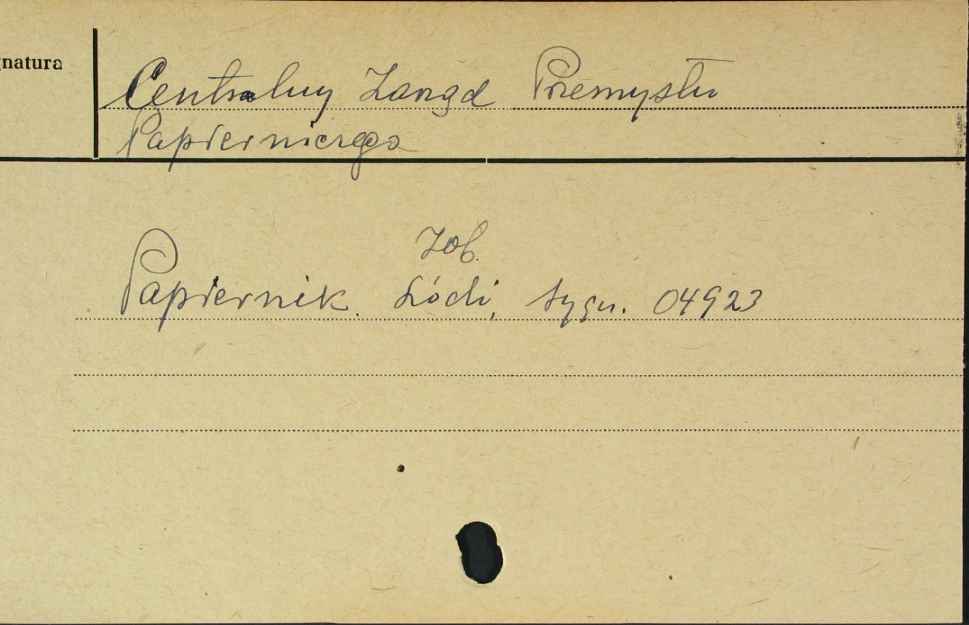 gnatura
Centralny Zarząd Przemysłu
Papierniczego
Zob.
Papiernik. Łódź, sygn. 04923